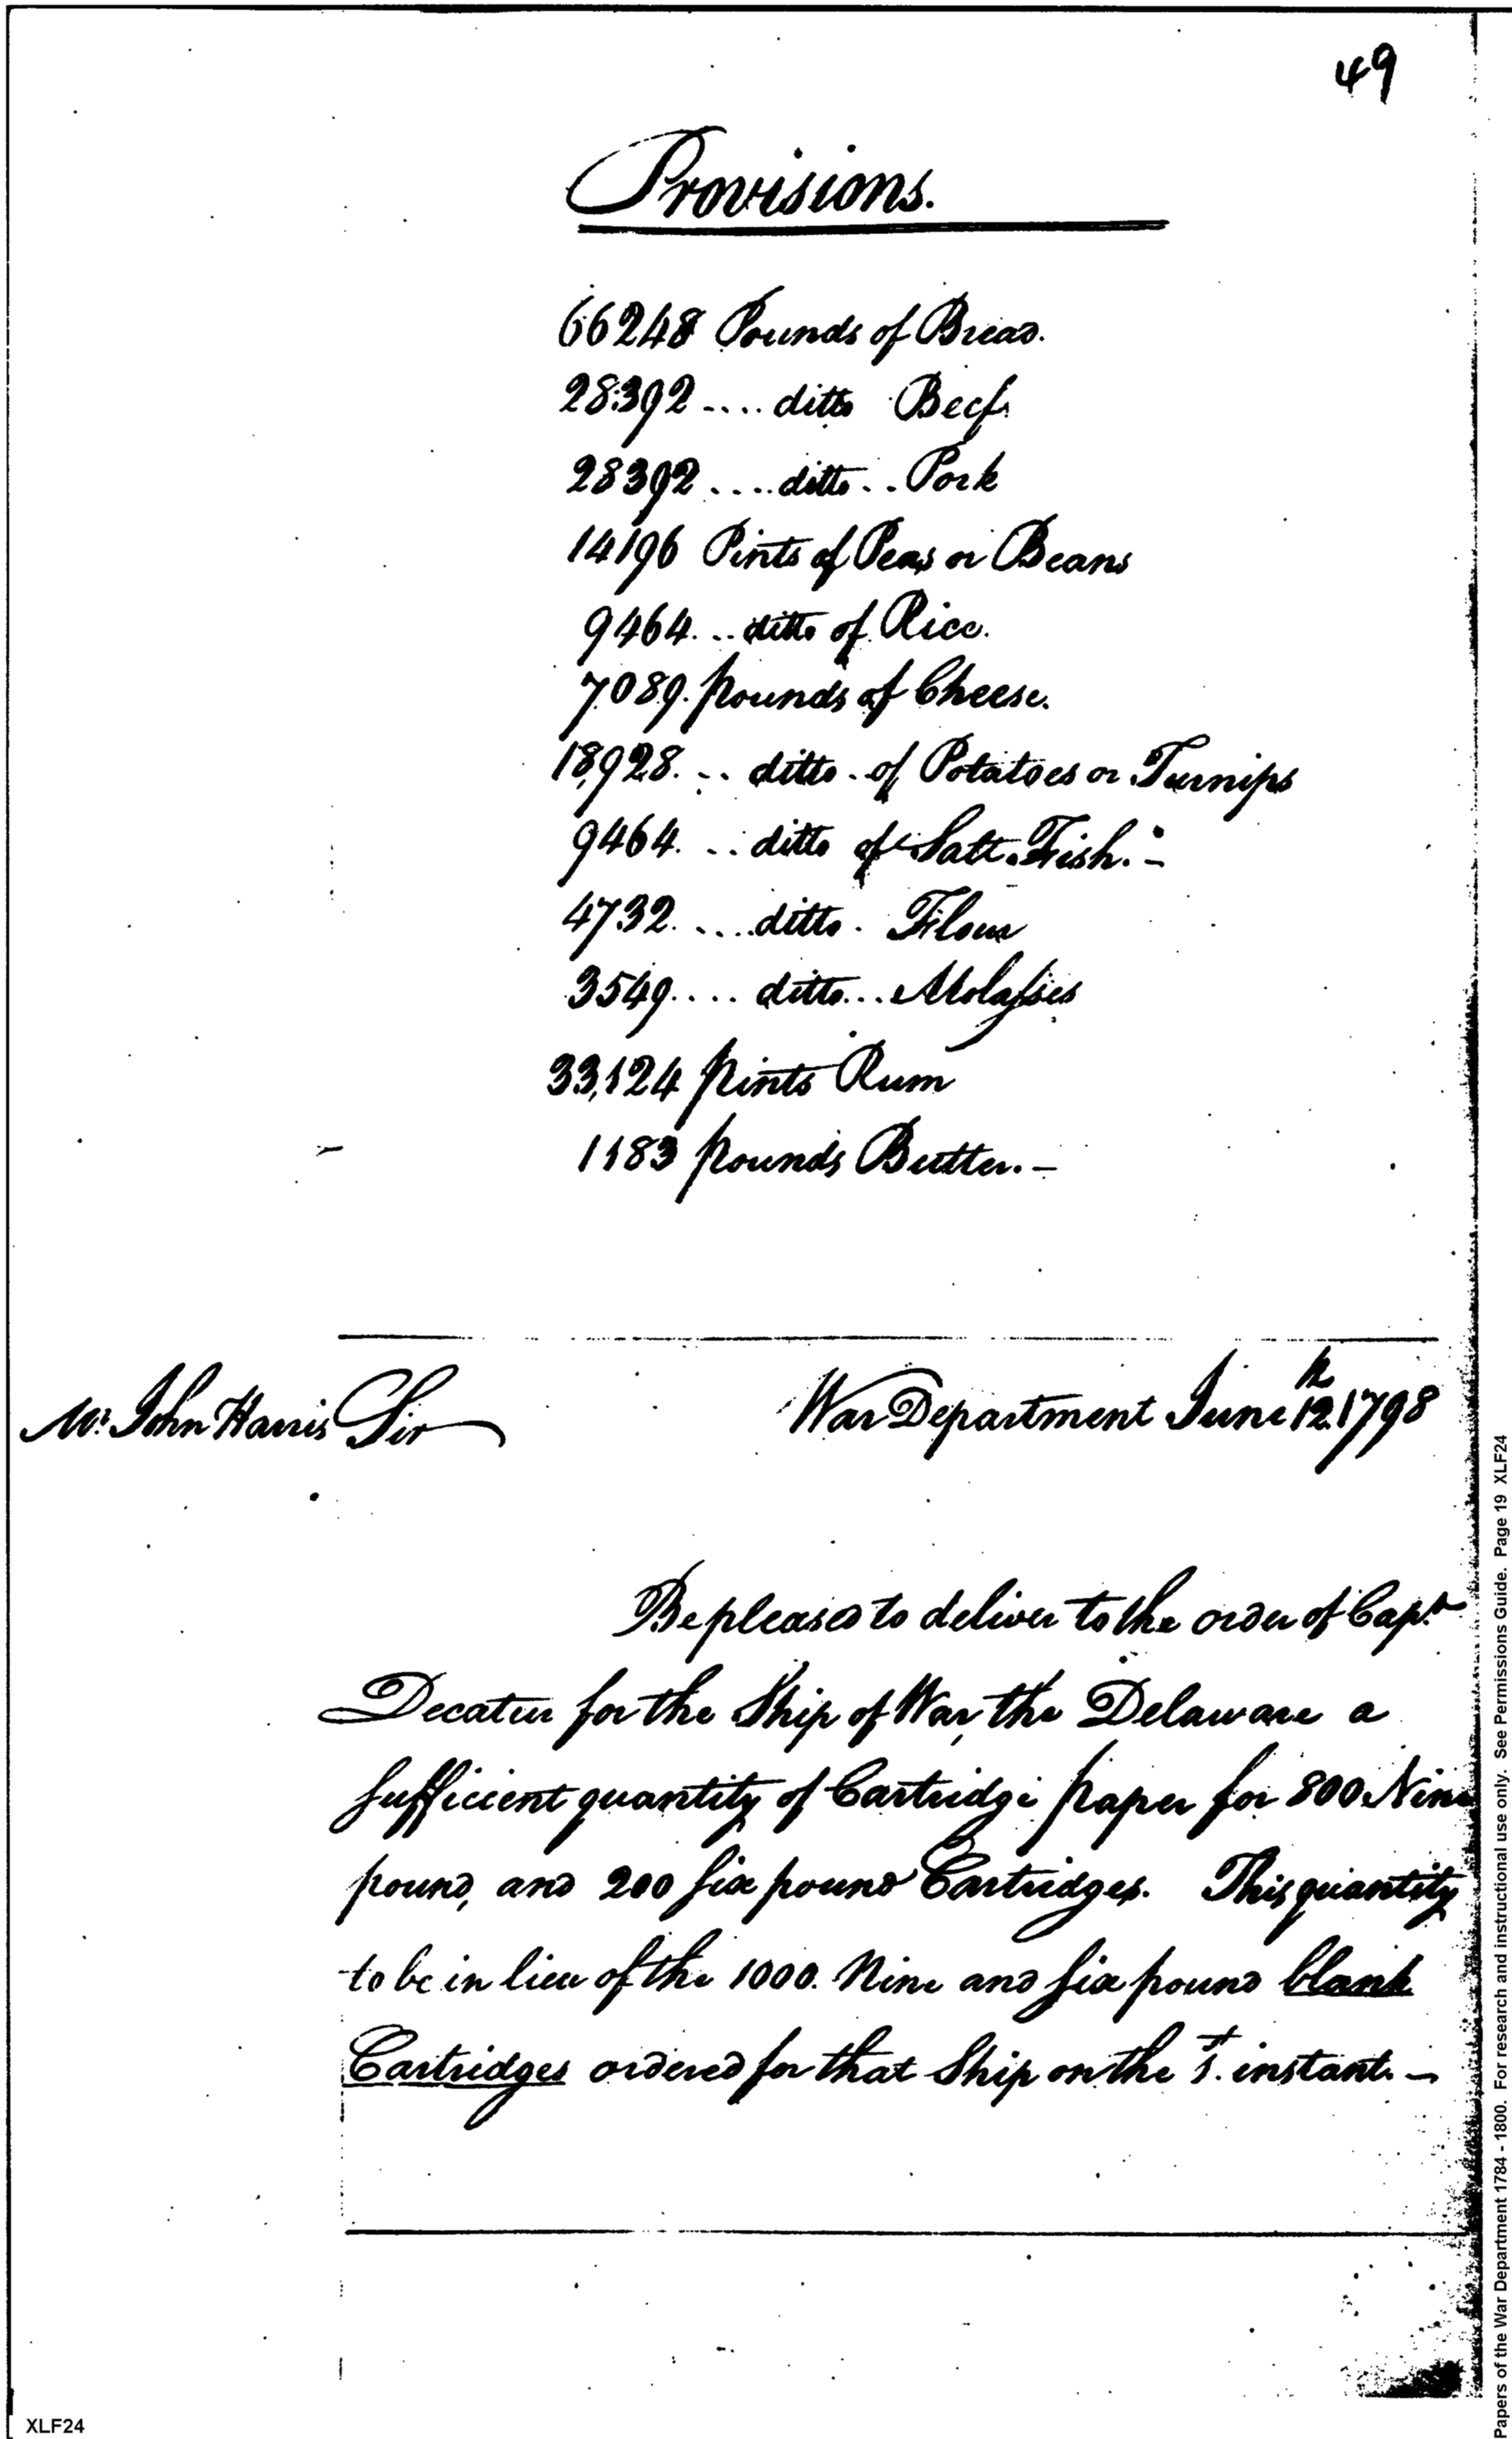 49
Provisions.
66248 Pounds of Bread.
28392 .... ditto Beef
28392 .... ditto .. Pork
14196 Pints of Peas or Beans
9464. .. ditto of Rice.
7089. pounds of Cheese.
18,928. .. ditto - of Potatoes or Turnips
9464. .. ditto of Salt Fish. -
4732. ... ditto. Flour
3549.... ditto... Molasses
33,124 pints Rum
1183 pounds Butter. -
Mr. John Harris Sir War Department June 12th 1798
Be pleased to deliver to the order of Capt.
Decatur for the Ship of War, the Delaware a
sufficient quantity of Cartridge paper for 800 Nine
pound, and 200 six pound Cartridges. This quantity
to be in lieu of the 1000. Nine and six pound blank
Cartridges ordered for that Ship on the 1st. instant. -
XLF24
Papers of the War Department 1784 - 1800. For research and instructional use only. See Permissions Guide. Page 19 XLF24